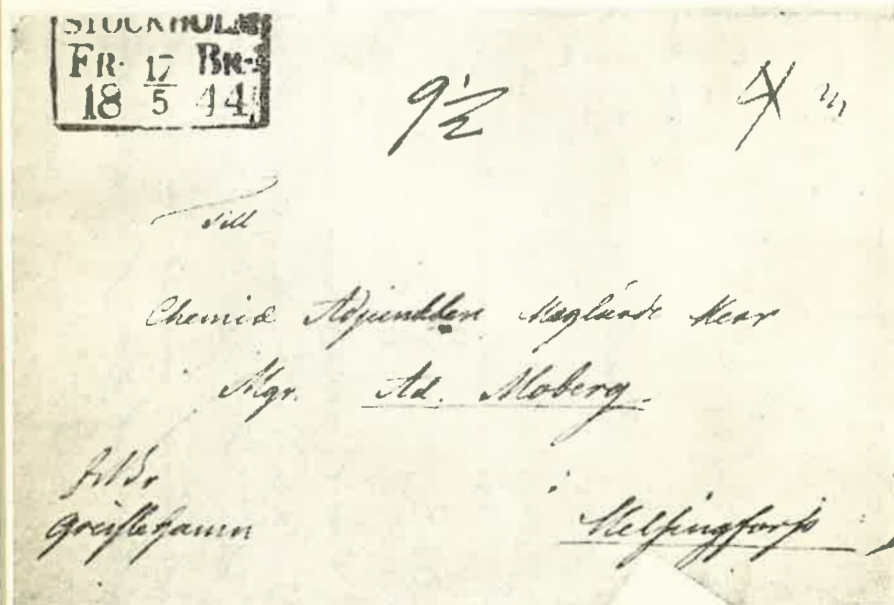 STOCKHOLM
FR. 17 BR.
18 5 44
9 1/2
Till
Chemiæ Adjuncten Höglärde Herr
Mgr. Ad. Moberg.
Grisslehamn
i
Helsingfors